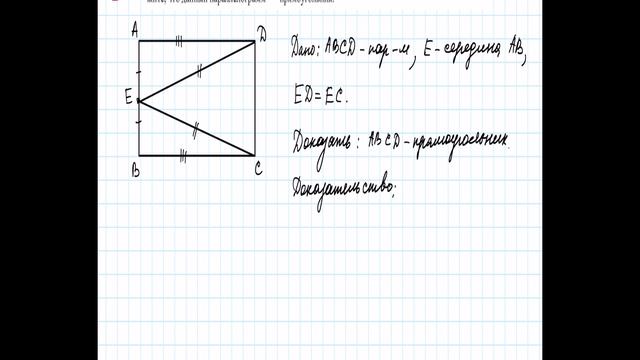 что данный параллелограмм — прямоугольник.
A
D
Дано: ABCD - пар-м, E - середина AB,
E
ED = EC.
Доказать: ABCD - прямоугольник.
B
C
Доказательство: